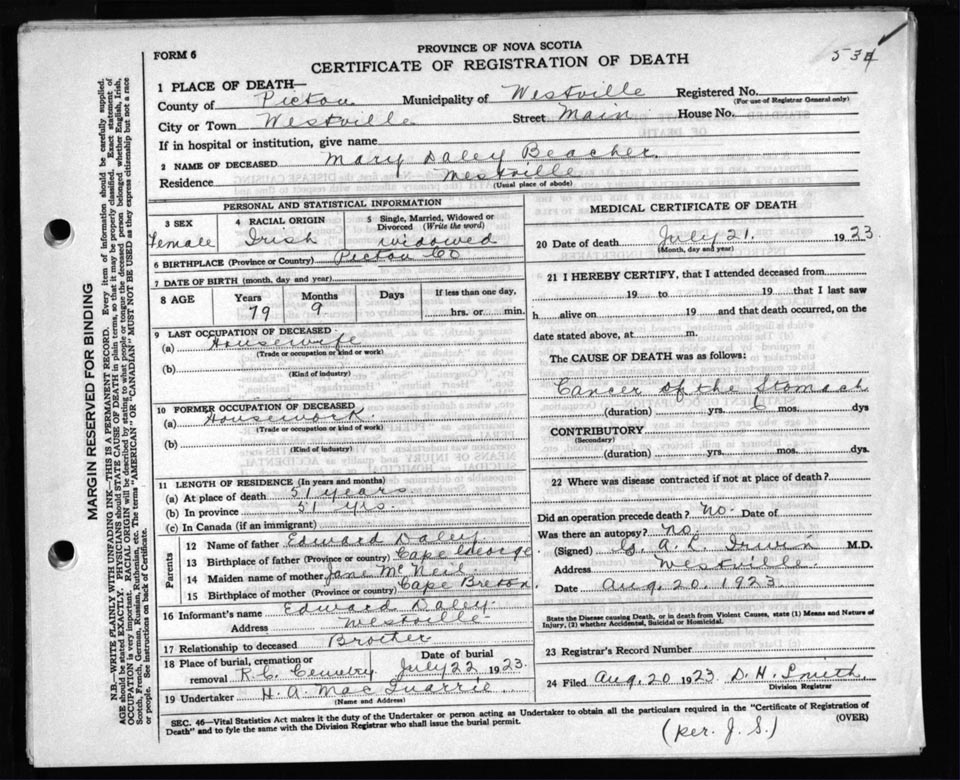 534
FORM 6
PROVINCE OF NOVA SCOTIA
CERTIFICATE OF REGISTRATION OF DEATH
1 PLACE OF DEATH—
County of Pictou Municipality of Westville Registered No.
(For use of Registrar General only)
City or Town Westville Street Main House No.
If in hospital or institution, give name
2 NAME OF DECEASED Mary Daley Beacher
Residence Westville
(Usual place of abode)
PERSONAL AND STATISTICAL INFORMATION
3 SEX
Female
4 RACIAL ORIGIN
Irish
5 Single, Married, Widowed or Divorced (Write the word)
widowed
6 BIRTHPLACE (Province or Country) Pictou Co
7 DATE OF BIRTH (month, day and year)
8 AGE
Years Months Days If less than one day,
79 9 hrs. or min.
9 LAST OCCUPATION OF DECEASED
(a) Housewife
(Trade or occupation or kind or work)
(b)
(Kind of industry)
10 FORMER OCCUPATION OF DECEASED
(a) Housework
(Trade or occupation or kind of work)
(b)
(Kind of industry)
11 LENGTH OF RESIDENCE (In years and months)
(a) At place of death 51 years
(b) In province 51 yrs.
(c) In Canada (if an immigrant)
Parents
12 Name of father Edward Daley
13 Birthplace of father (Province or country) Cape George
14 Maiden name of mother Jane McNeil
15 Birthplace of mother (Province or country) Cape Breton
16 Informant's name Edward Daley
Address Westville
17 Relationship to deceased Brother
18 Place of burial, cremation or removal R.C. Cemetry Date of burial July 22 1923
19 Undertaker H. A. MacQuarrie
(Name and Address)
MEDICAL CERTIFICATE OF DEATH
20 Date of death July 21. 1923.
(Month, day and year)
21 I HEREBY CERTIFY, that I attended deceased from
19 to 19 that I last saw
h alive on 19 and that death occurred, on the
date stated above, at m.
The CAUSE OF DEATH was as follows:
Cancer of the Stomach
(duration) yrs. 6 mos. dys
CONTRIBUTORY
(Secondary)
(duration) yrs. mos. dys.
22 Where was disease contracted if not at place of death?
Did an operation precede death? No. Date of
Was there an autopsy? No
(Signed) G. A. L. Irwin M.D.
Address Westville
Date Aug. 20, 1923
State the Disease causing Death, or in death from Violent Causes, state (1) Means and Nature of
Injury, (2) whether Accidental, Suicidal or Homicidal.
23 Registrar's Record Number
24 Filed Aug. 20 1923 D. H. Smith
Division Registrar
SEC. 46—Vital Statistics Act makes it the duty of the Undertaker or person acting as Undertaker to obtain all the particulars required in the "Certificate of Registration of
Death" and to fyle the same with the Division Registrar who shall issue the burial permit.
(OVER)
(per. J. S.)
MARGIN RESERVED FOR BINDING
N.B.—WRITE PLAINLY WITH UNFADING INK—THIS IS A PERMANENT RECORD. Every item of information should be carefully supplied.
AGE should be stated EXACTLY. PHYSICIANS should STATE CAUSE OF DEATH in plain terms, so that it may be properly classified. Exact statement of
OCCUPATION is very important. RACIAL ORIGIN will be described by stating to what people or tongue the deceased person belonged whether English, Irish,
Scotch, French, German, Russian, Ruthenian, etc. The terms "AMERICAN" OR "CANADIAN" MUST NOT BE USED as they express citizenship but not a race
or people. See instructions on back of Certificate.